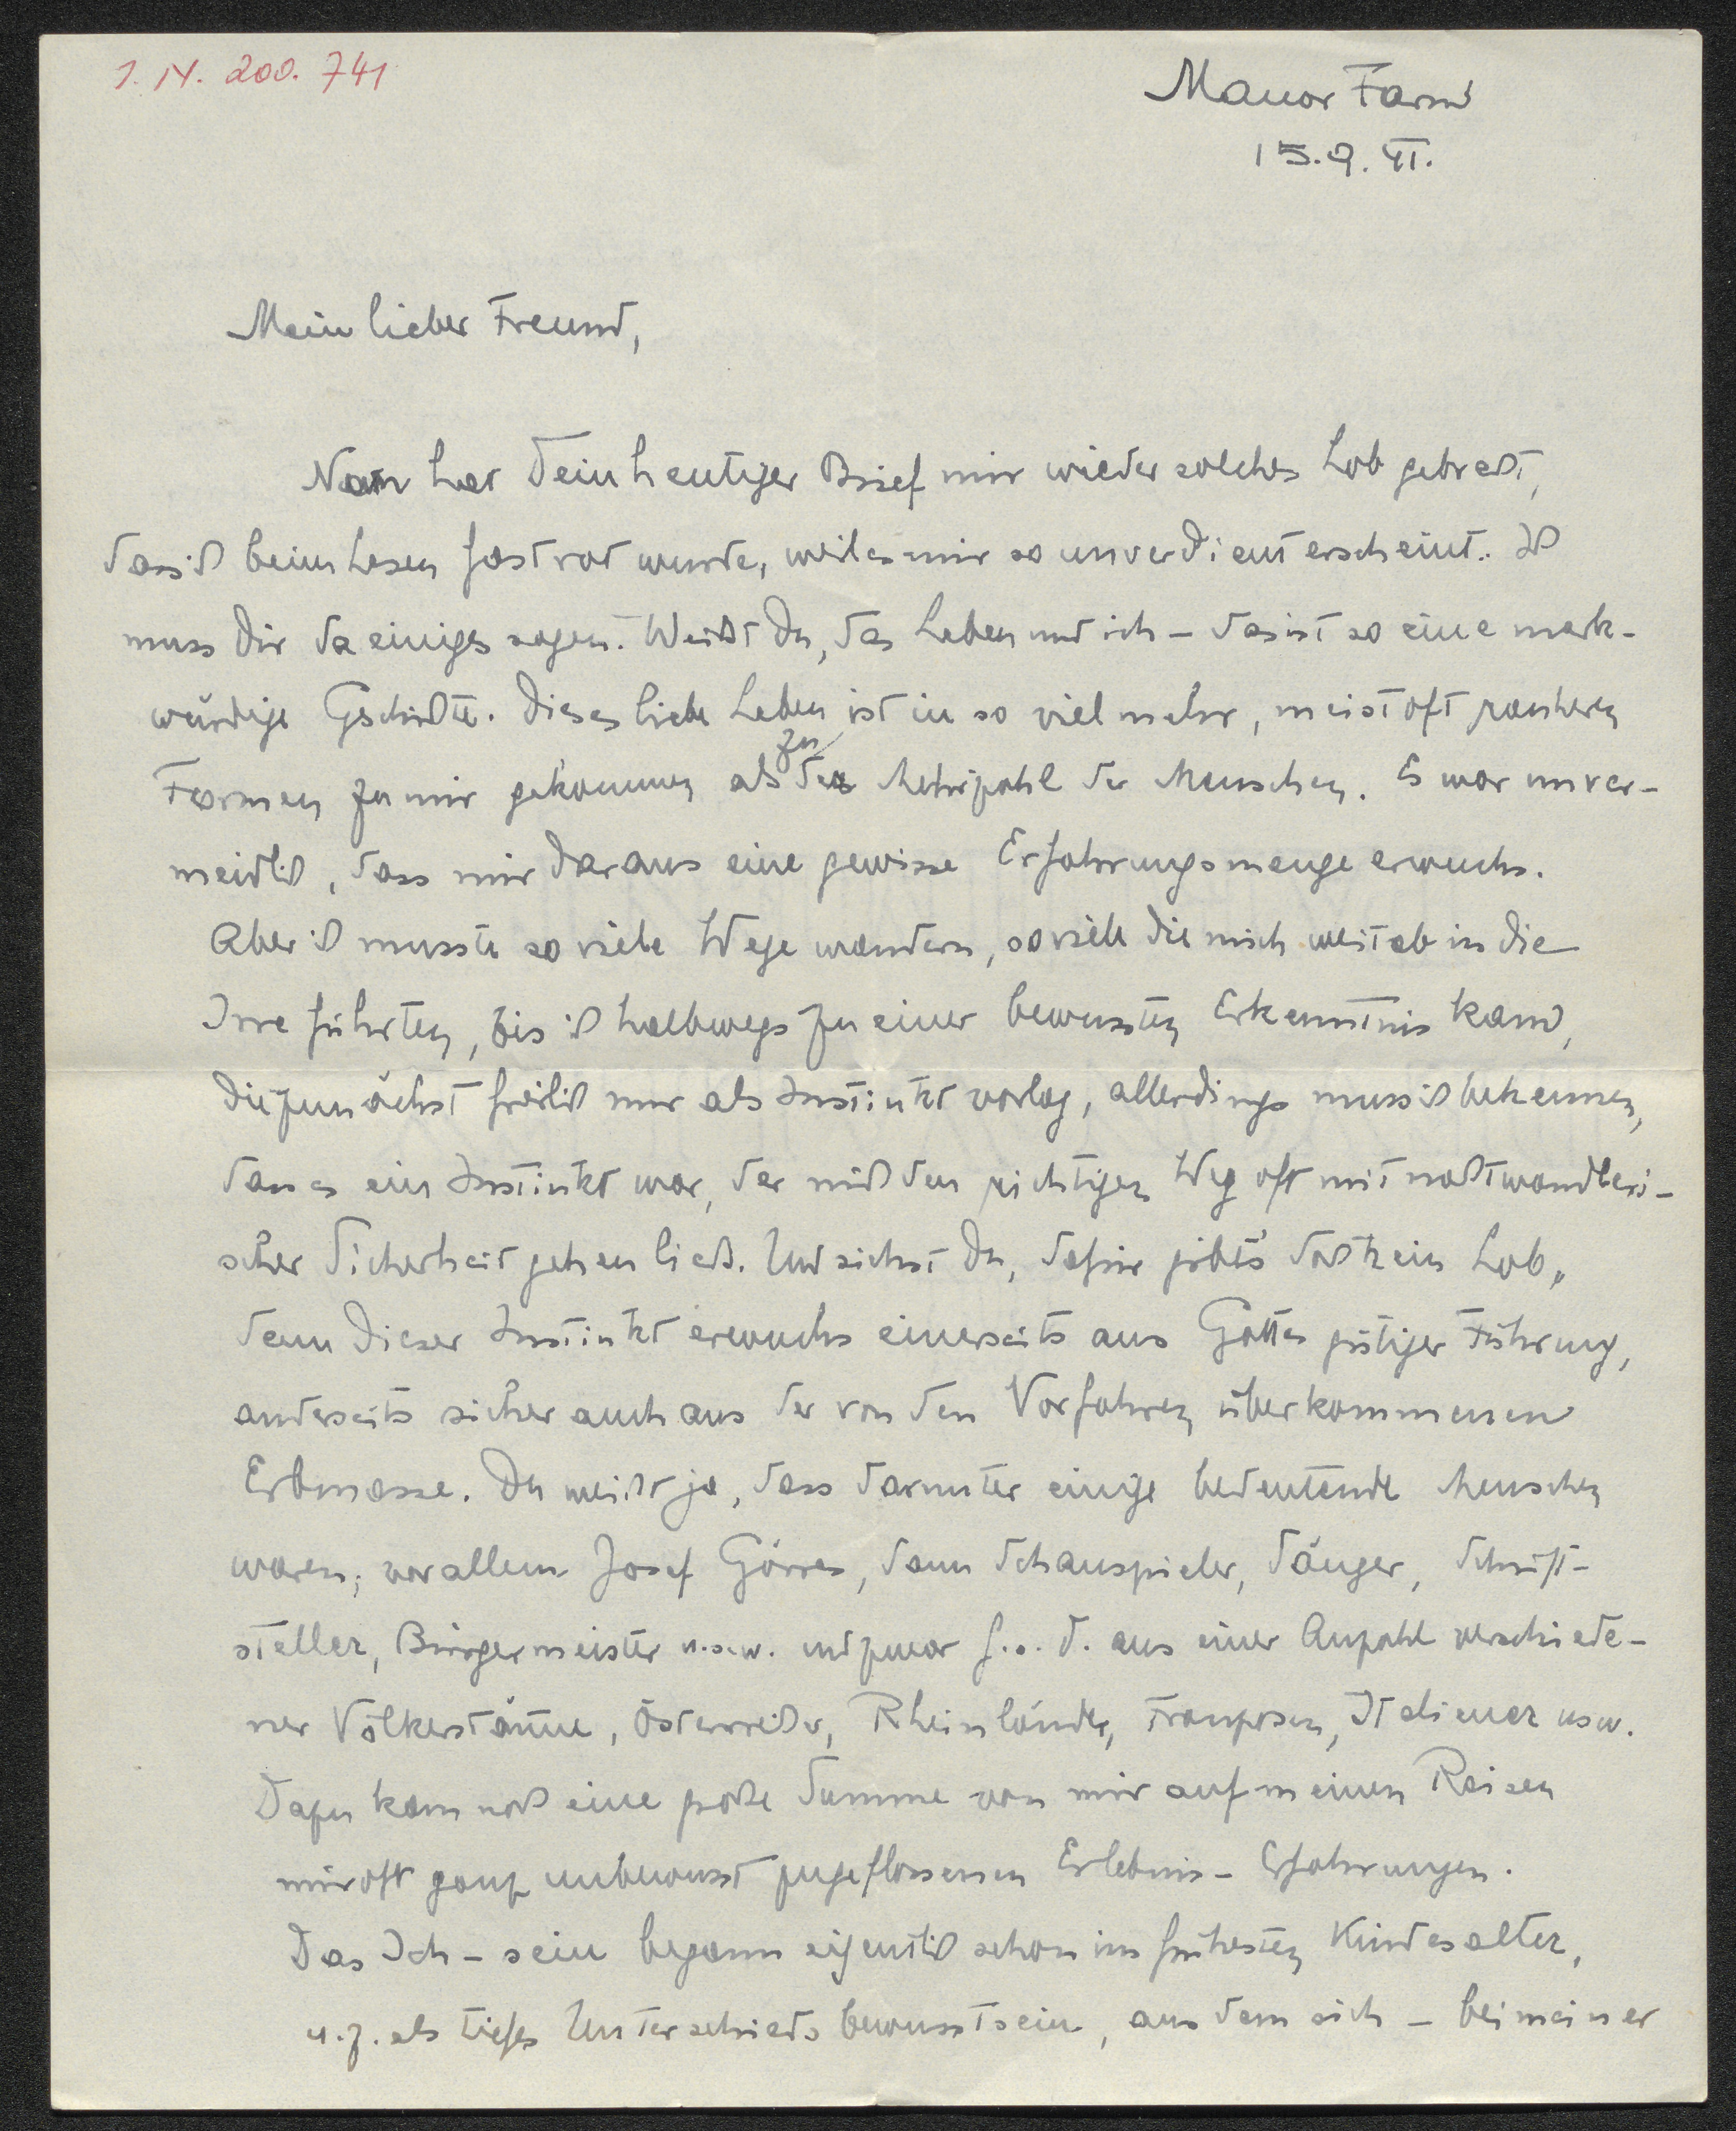 1. IV. 200. 741
Manor Farm
15.9.41.
Mein lieber Freund,
Nun hat Dein heutiger Brief mir wieder solches Lob gebracht,
dass ich beim Lesen fast rot wurde, weil es mir so unverdient erscheint. Ich
muss Dir da einiges sagen. Weißt Du, das Leben und ich - das ist so eine merk-
würdige Geschichte. Dieses liebe Leben ist in so viel mehr, meist oft rauheren
Formen zu mir gekommen als zu der Mehrzahl der Menschen. Es war unver-
meidlich, dass mir daraus eine gewisse Erfahrungsmenge erwuchs.
Aber ich musste so viele Wege wandern, so viele die mich weitab in die
Irre führten, bis ich halbwegs zu einer bewussten Erkenntnis kam,
die zunächst freilich nur als Instinkt vorlag, allerdings muss ich bekennen,
dass es ein Instinkt war, der mich den richtigen Weg oft mit nachtwandleri-
scher Sicherheit gehen ließ. Und siehst Du, dafür gibt's doch kein Lob,
denn dieser Instinkt erwuchs einerseits aus Gottes gütiger Führung,
anderseits sicher auch aus der von den Vorfahren überkommenen
Erbmasse. Du weißt ja, dass darunter einige bedeutende Menschen
waren; vor allem Josef Görres, dann Schauspieler, Sänger, Schrift-
steller, Bürgermeister u.s.w. und zwar aus einer Anzahl verschiede-
ner Völkerstämme, Österreicher, Rheinländer, Franzosen, Italiener usw.
Dazu kam noch eine große Summe von mir auf meinen Reisen
mir oft ganz unbewusst zugeflossenen Erlebnis-Erfahrungen.
Das Ich-sein begann eigentlich schon im frühesten Kindesalter,
u.z. als tiefes Unterschiedsbewusstsein, aus dem sich - bei meiner